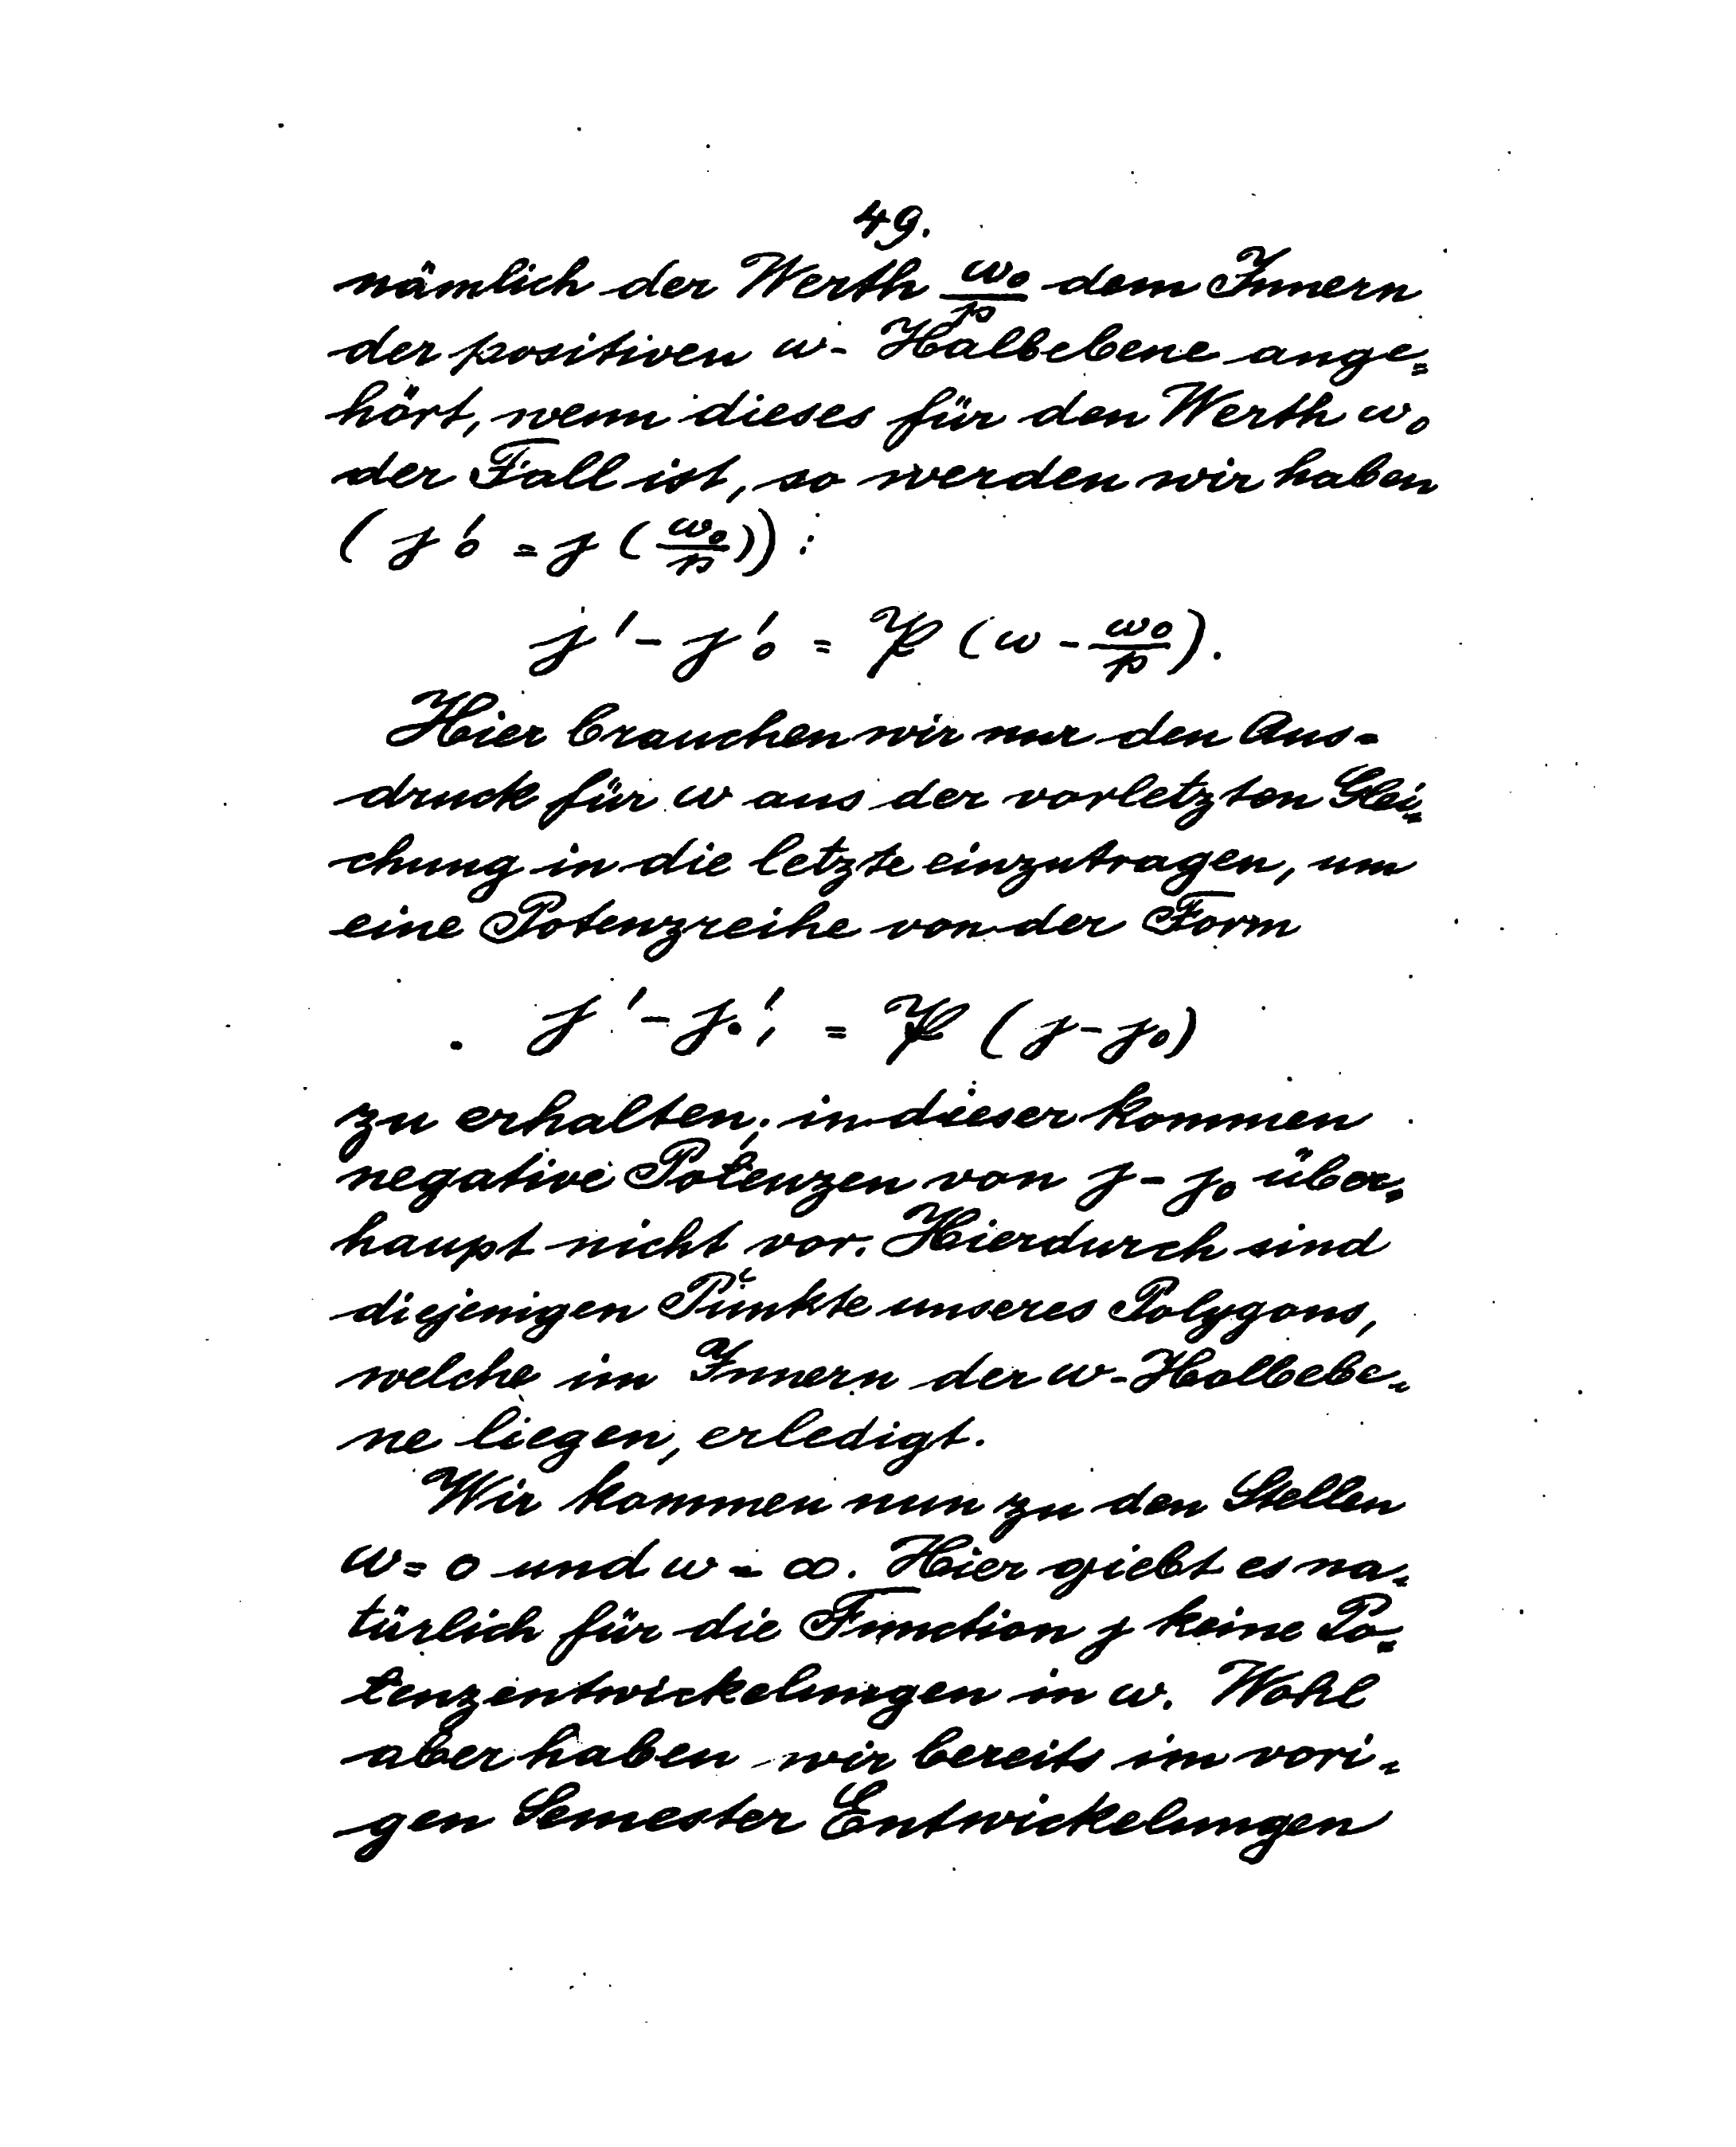 49.
nämlich der Werth ω₀/p dem Innern
der positiven ω-Halbebene ange=
hört, wenn dieses für den Werth ω₀
der Fall ist, so werden wir haben
(j₀' = j(ω₀/p)):
j' - j₀' = 𝔓(ω - ω₀/p).
Hier brauchen wir nur den Aus=
druck für ω aus der vorletzten Glei=
chung in die letzte einzutragen, um
eine Potenzreihe von der Form
j' - j₀' = 𝔓(j - j₀)
zu erhalten; in dieser kommen
negative Potenzen von j - j₀ über=
haupt nicht vor. Hierdurch sind
diejenigen Punkte unseres Polygons,
welche im Innern der ω-Halbebe=
ne liegen, erledigt.
Wir kommen nun zu den Stellen
ω = 0 und ω = ∞. Hier giebt es na=
türlich für die Function j keine Po=
tenzentwickelungen in ω. Wohl
aber haben wir bereits im vori=
gen Semester Entwickelungen